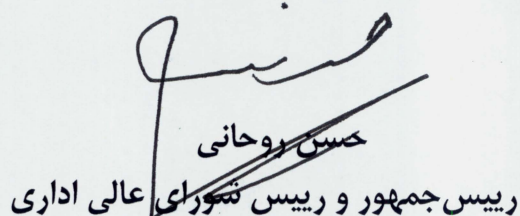 حسن روحانی
رییس‌جمهور و رییس شورای عالی اداری